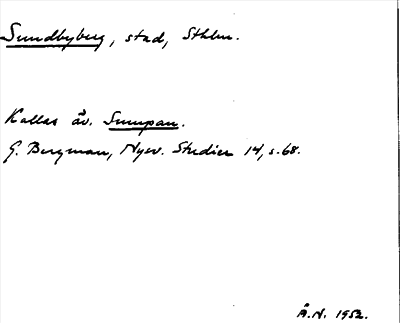 Sundbyberg, stad, Sthlm.
Kallas äv. Sumpan.
G. Bergman, Nysv. Studier 14, s. 68.
Å.N. 1952.